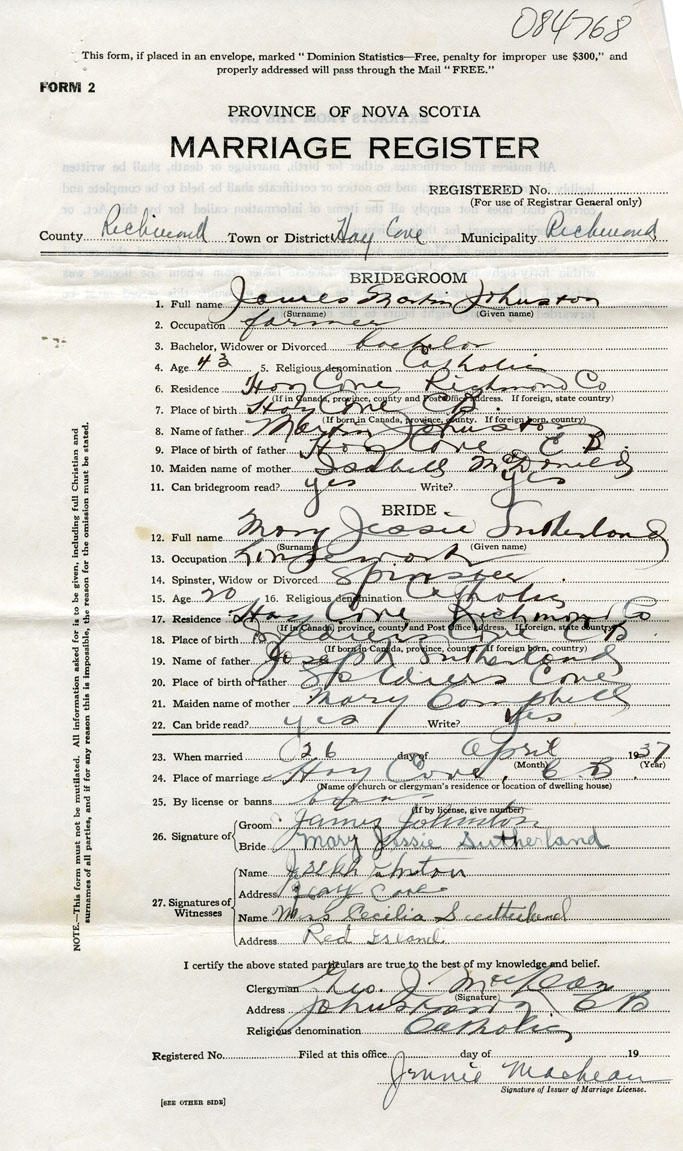 084768
This form, if placed in an envelope, marked "Dominion Statistics—Free, penalty for improper use $300," and
properly addressed will pass through the Mail "FREE."
FORM 2
PROVINCE OF NOVA SCOTIA
MARRIAGE REGISTER
REGISTERED No.
(For use of Registrar General only)
County Richmond Town or District Hay Cove Municipality Richmond
BRIDEGROOM
1. Full name James Martin Johnston
(Surname) (Given name)
2. Occupation farmer
3. Bachelor, Widower or Divorced bachelor
4. Age 43 5. Religious denomination Catholic
6. Residence Hay Cove Richmond Co
(If in Canada, province, county and Post Office address. If foreign, state country)
7. Place of birth Hay Cove C B.
(If born in Canada, province, county. If foreign born, country)
8. Name of father Martin Johnston
9. Place of birth of father Hay Cove C B.
10. Maiden name of mother Isabell McDonald
11. Can bridegroom read? yes Write? yes
BRIDE
12. Full name Mary Jessie Sutherland
(Surname) (Given name)
13. Occupation housework
14. Spinster, Widow or Divorced Spinster
15. Age 20 16. Religious denomination Catholic
17. Residence Hay Cove Richmond Co
(If in Canada, province, county and Post Office address. If foreign, state country)
18. Place of birth Soldiers Cove C B.
(If born in Canada, province, county. If foreign born, country)
19. Name of father Joseph Sutherland
20. Place of birth of father Soldiers Cove
21. Maiden name of mother Mary Campbell
22. Can bride read? yes Write? yes
23. When married 26 day of April 1937
(Month) (Year)
24. Place of marriage Hay Cove, C B
(Name of church or clergyman's residence or location of dwelling house)
25. By license or banns
(If by license, give number)
26. Signature of
Groom James Johnston
Bride Mary Jessie Sutherland
27. Signatures of Witnesses
Name Johnston
Address Hay Cove
Name Miss Cecilia Sutherland
Address Red Island
I certify the above stated particulars are true to the best of my knowledge and belief.
Clergyman Geo. J. McLean
(Signature)
Address Johnstown, C B
Religious denomination Catholic
Registered No. Filed at this office day of 19
Jennie MacLean
Signature of Issuer of Marriage License.
[SEE OTHER SIDE]
NOTE.—This form must not be mutilated. All information asked for is to be given, including full Christian and
surnames of all parties, and if for any reason this is impossible, the reason for the omission must be stated.